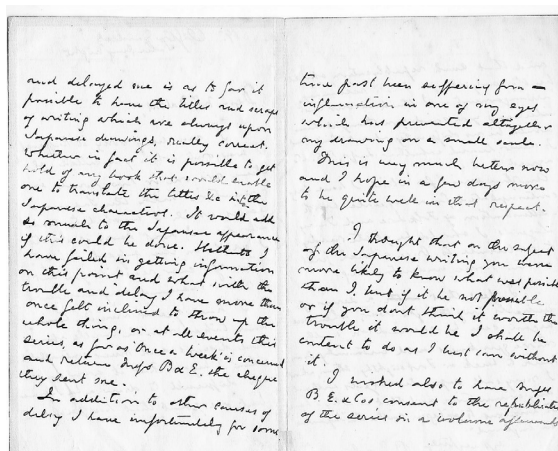 and delayed me is as to how far it
possible to have the titles and scraps
of writing which are always upon
Japanese drawings, really correct.
Whether in fact it is possible to get
hold of any book that would enable
one to translate the titles &c into the
Japanese characters. It would add
so much to the Japanese appearance
if this could be done. Hitherto I
have failed in getting information
on this point and what with the
trouble and delay I have more than
once felt inclined to throw up the
whole thing, or at all events this
series, as far as Once a Week is concerned
and return Messrs B & E. the cheque
they sent me.
In addition to other causes of
delay I have unfortunately for some
time past been suffering from
inflammation in one of my eyes
which has prevented altogether
my drawing on a small scale.
This is very much better now
and I hope in a few days more
to be quite well in that respect.
I thought that on the subject
of the Japanese writing you were
more likely to know what was possible
than I. but if it be not possible
or if you dont think it worth the
trouble it would be I shall be
content to do as I best can without
it.
I wished also to have Messrs
B. E. & Cos consent to the republication
of the series in a volume afterwards